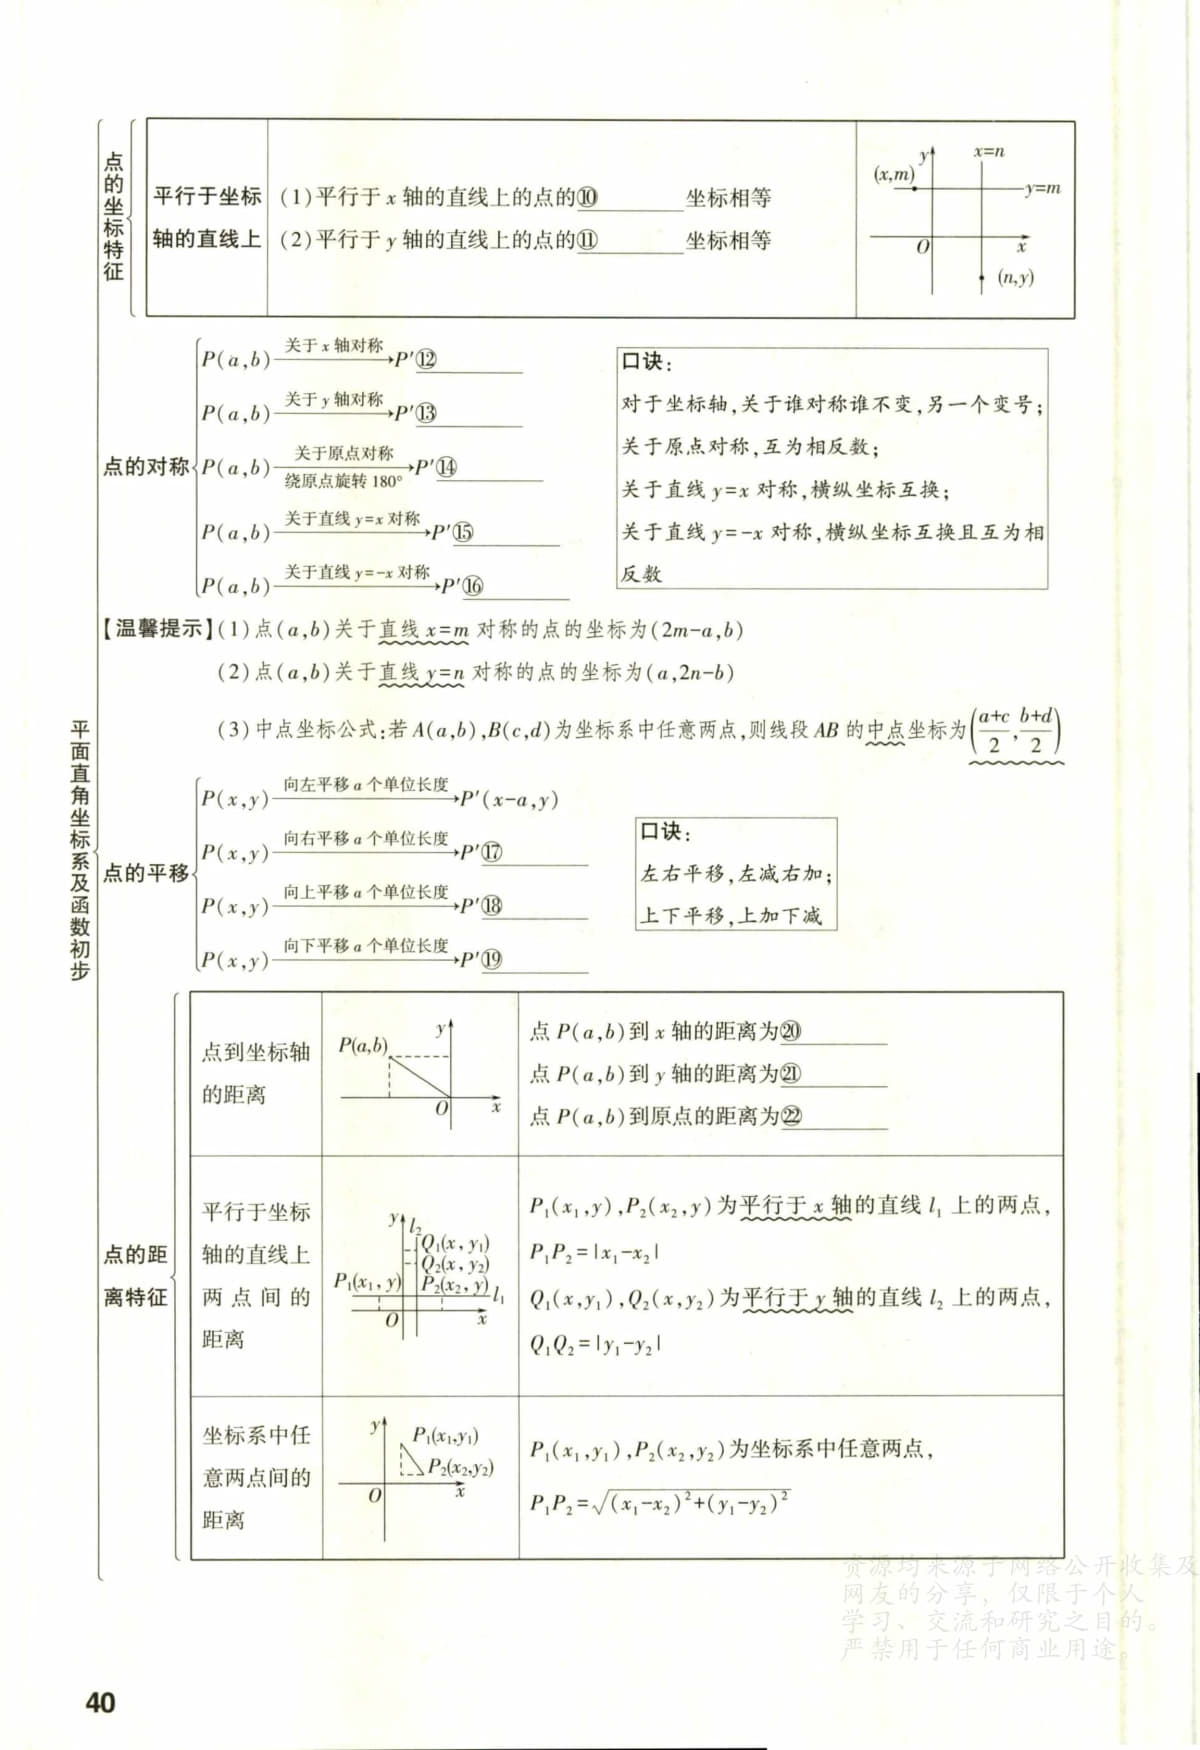 平面直角坐标系及函数初步
点的坐标特征
平行于坐标
轴的直线上
(1)平行于 x 轴的直线上的点的⑩________坐标相等
(2)平行于 y 轴的直线上的点的⑪________坐标相等
y
x=n
(x,m)
y=m
O
x
(n,y)
点的对称
P(a,b) 关于 x 轴对称→P′⑫________
P(a,b) 关于 y 轴对称→P′⑬________
P(a,b) 关于原点对称 绕原点旋转 180°→P′⑭________
P(a,b) 关于直线 y=x 对称→P′⑮________
P(a,b) 关于直线 y=-x 对称→P′⑯________
口诀:
对于坐标轴,关于谁对称谁不变,另一个变号;
关于原点对称,互为相反数;
关于直线 y=x 对称,横纵坐标互换;
关于直线 y=-x 对称,横纵坐标互换且互为相
反数
【温馨提示】(1)点(a,b)关于直线 x=m 对称的点的坐标为(2m-a,b)
(2)点(a,b)关于直线 y=n 对称的点的坐标为(a,2n-b)
(3)中点坐标公式:若 A(a,b),B(c,d)为坐标系中任意两点,则线段 AB 的中点坐标为(a+c/2, b+d/2)
点的平移
P(x,y) 向左平移 a 个单位长度→P′(x-a,y)
P(x,y) 向右平移 a 个单位长度→P′⑰________
P(x,y) 向上平移 a 个单位长度→P′⑱________
P(x,y) 向下平移 a 个单位长度→P′⑲________
口诀:
左右平移,左减右加;
上下平移,上加下减
点的距
离特征
点到坐标轴
的距离
P(a,b)
y
O
x
点 P(a,b)到 x 轴的距离为⑳________
点 P(a,b)到 y 轴的距离为㉑________
点 P(a,b)到原点的距离为㉒________
平行于坐标
轴的直线上
两点间的
距离
y
l₂
Q₁(x, y₁)
Q₂(x, y₂)
P₁(x₁, y)
P₂(x₂, y)
l₁
O
x
P₁(x₁,y),P₂(x₂,y)为平行于 x 轴的直线 l₁ 上的两点,
P₁P₂=|x₁-x₂|
Q₁(x,y₁),Q₂(x,y₂)为平行于 y 轴的直线 l₂ 上的两点,
Q₁Q₂=|y₁-y₂|
坐标系中任
意两点间的
距离
y
P₁(x₁,y₁)
P₂(x₂,y₂)
O
x
P₁(x₁,y₁),P₂(x₂,y₂)为坐标系中任意两点,
P₁P₂=√(x₁-x₂)²+(y₁-y₂)²
资源均来源于网络公开收集及
网友的分享，仅限于个人
学习、交流和研究之目的。
严禁用于任何商业用途。
40